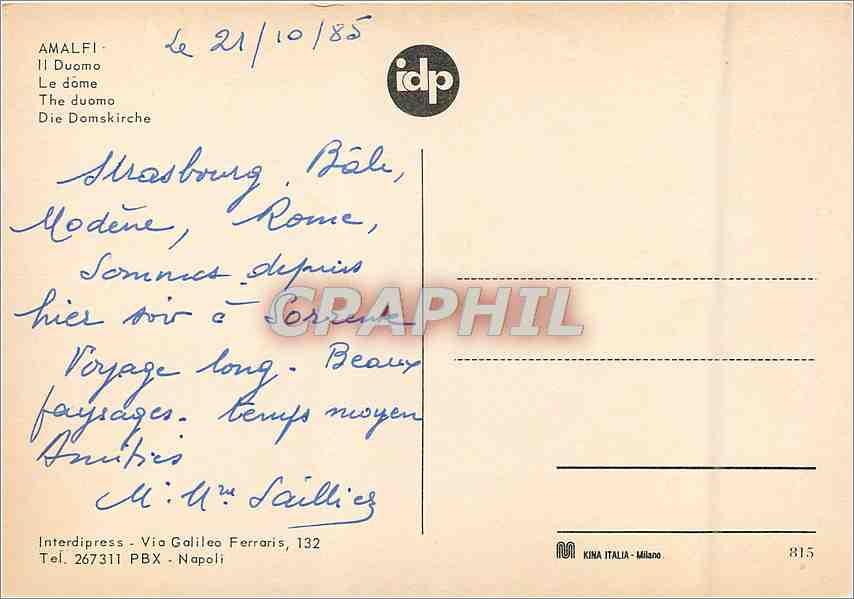 Le 21/10/85
AMALFI -
Il Duomo
Le dôme
The duomo
Die Domskirche
idp
Strasbourg, Bâle,
Modène, Rome,
Sommes depuis
hier soir à Sorrente
Voyage long - Beaux
paysages - temps moyen
Amitiés
Mr. Mme Saillier
CPAPHIL
Interdipress - Via Galileo Ferraris, 132
Tel. 267311 PBX - Napoli
KINA ITALIA - Milano
815